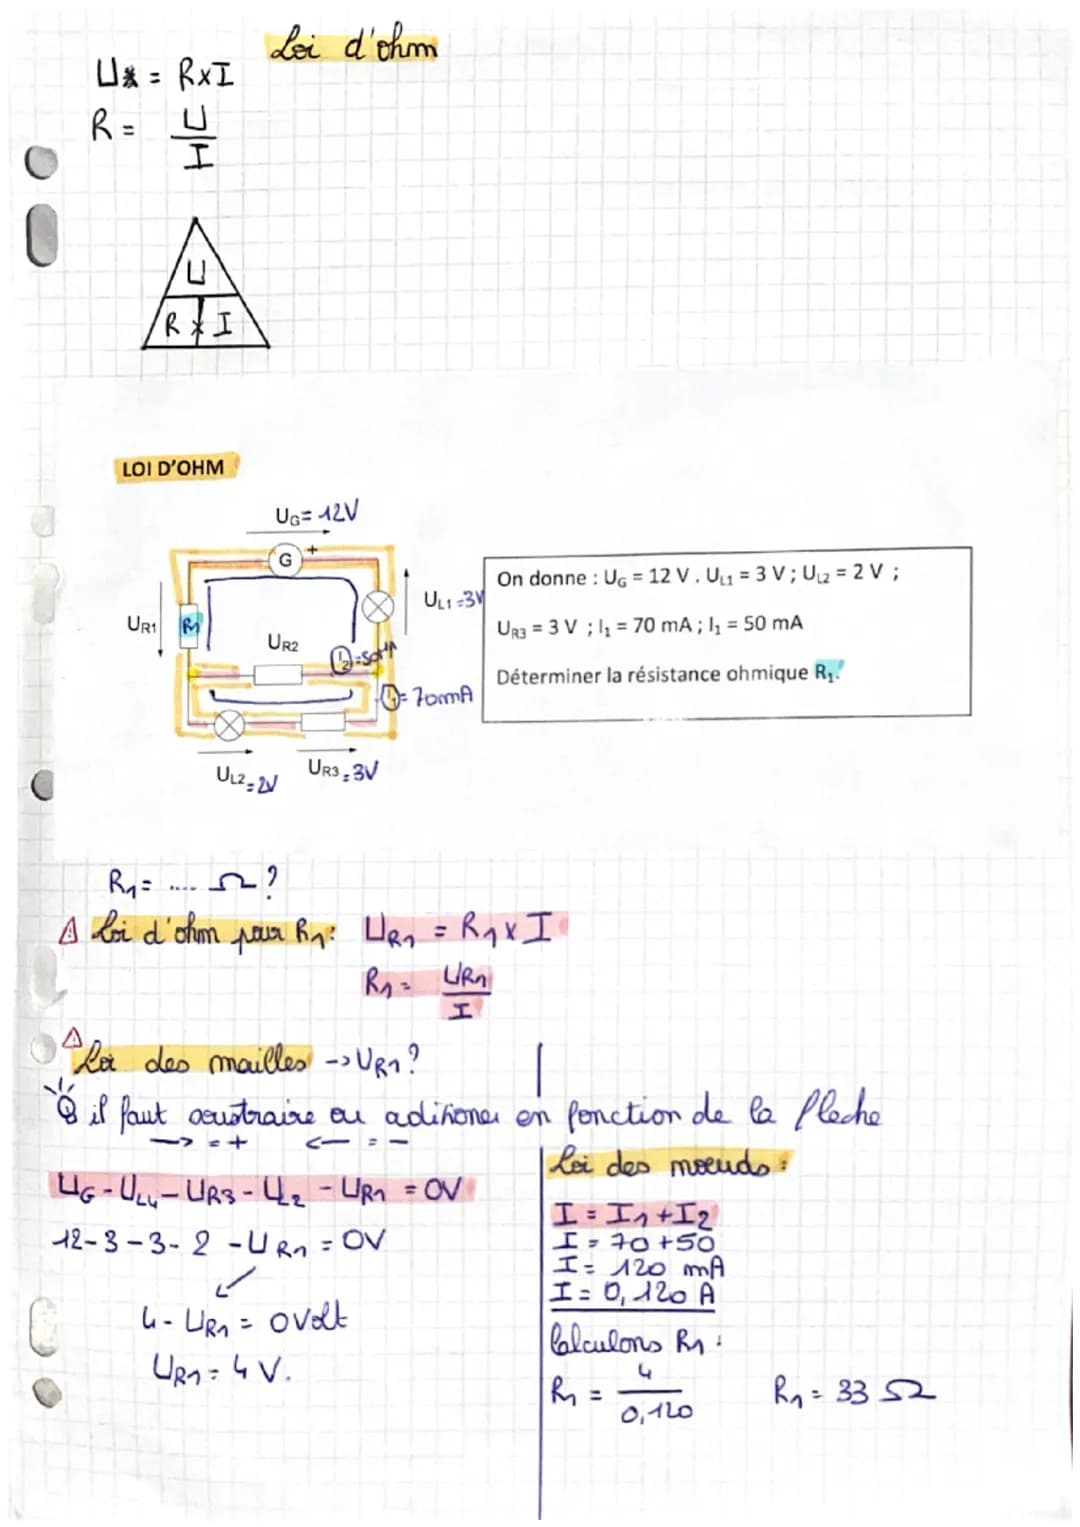 Loi d'ohm
U = RxI
R = U
I
U
R x I
LOI D'OHM
UG= 12V
G +
UR1
R1
UL1=3V
UR2
I2=50mA
I1=70mA
UL2=2V
UR3=3V
On donne : UG = 12 V . UL1 = 3 V ; UL2 = 2 V ;
UR3 = 3 V ; I1 = 70 mA ; I1 = 50 mA
Déterminer la résistance ohmique R1.
R1= .... Ω ?
Loi d'ohm pour R1: UR1 = R1 x I
R1= UR1
I
Loi des mailles -> UR1?
il faut soustraire ou aditioner en fonction de la fleche
→ = + ← = -
UG - UL1 - UR3 - UL2 - UR1 = 0V
12-3-3-2 -UR1 = 0V
4 - UR1 = 0 Volt
UR1 = 4 V.
Loi des noeuds :
I = I1 + I2
I = 70 + 50
I = 120 mA
I = 0,120 A
Calculons R1 :
R1 = 4
0,120
R1 = 33 Ω